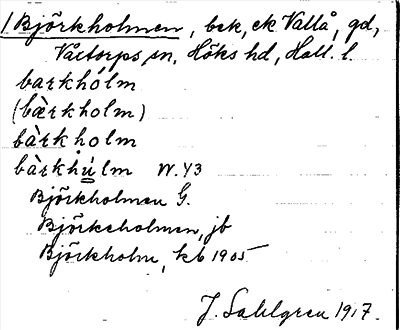 1 Björkholmen, bek, ek Vallå, gd,
Våxtorps sn, Höks hd, Hall. l.
barkhólm
(bærkholm)
bàrkholm
bàrkhúlm W. 43
Björkholmen G.
Björkeholmen, jb
Björkholm, kb 1905
J. Sahlgren 1917.